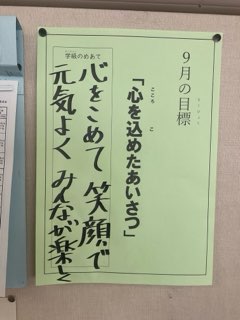 9月の目標
「心を込めたあいさつ」
こころ こ
学級のめあて
心をこめて 笑顔で
元気よく みんなが楽しく